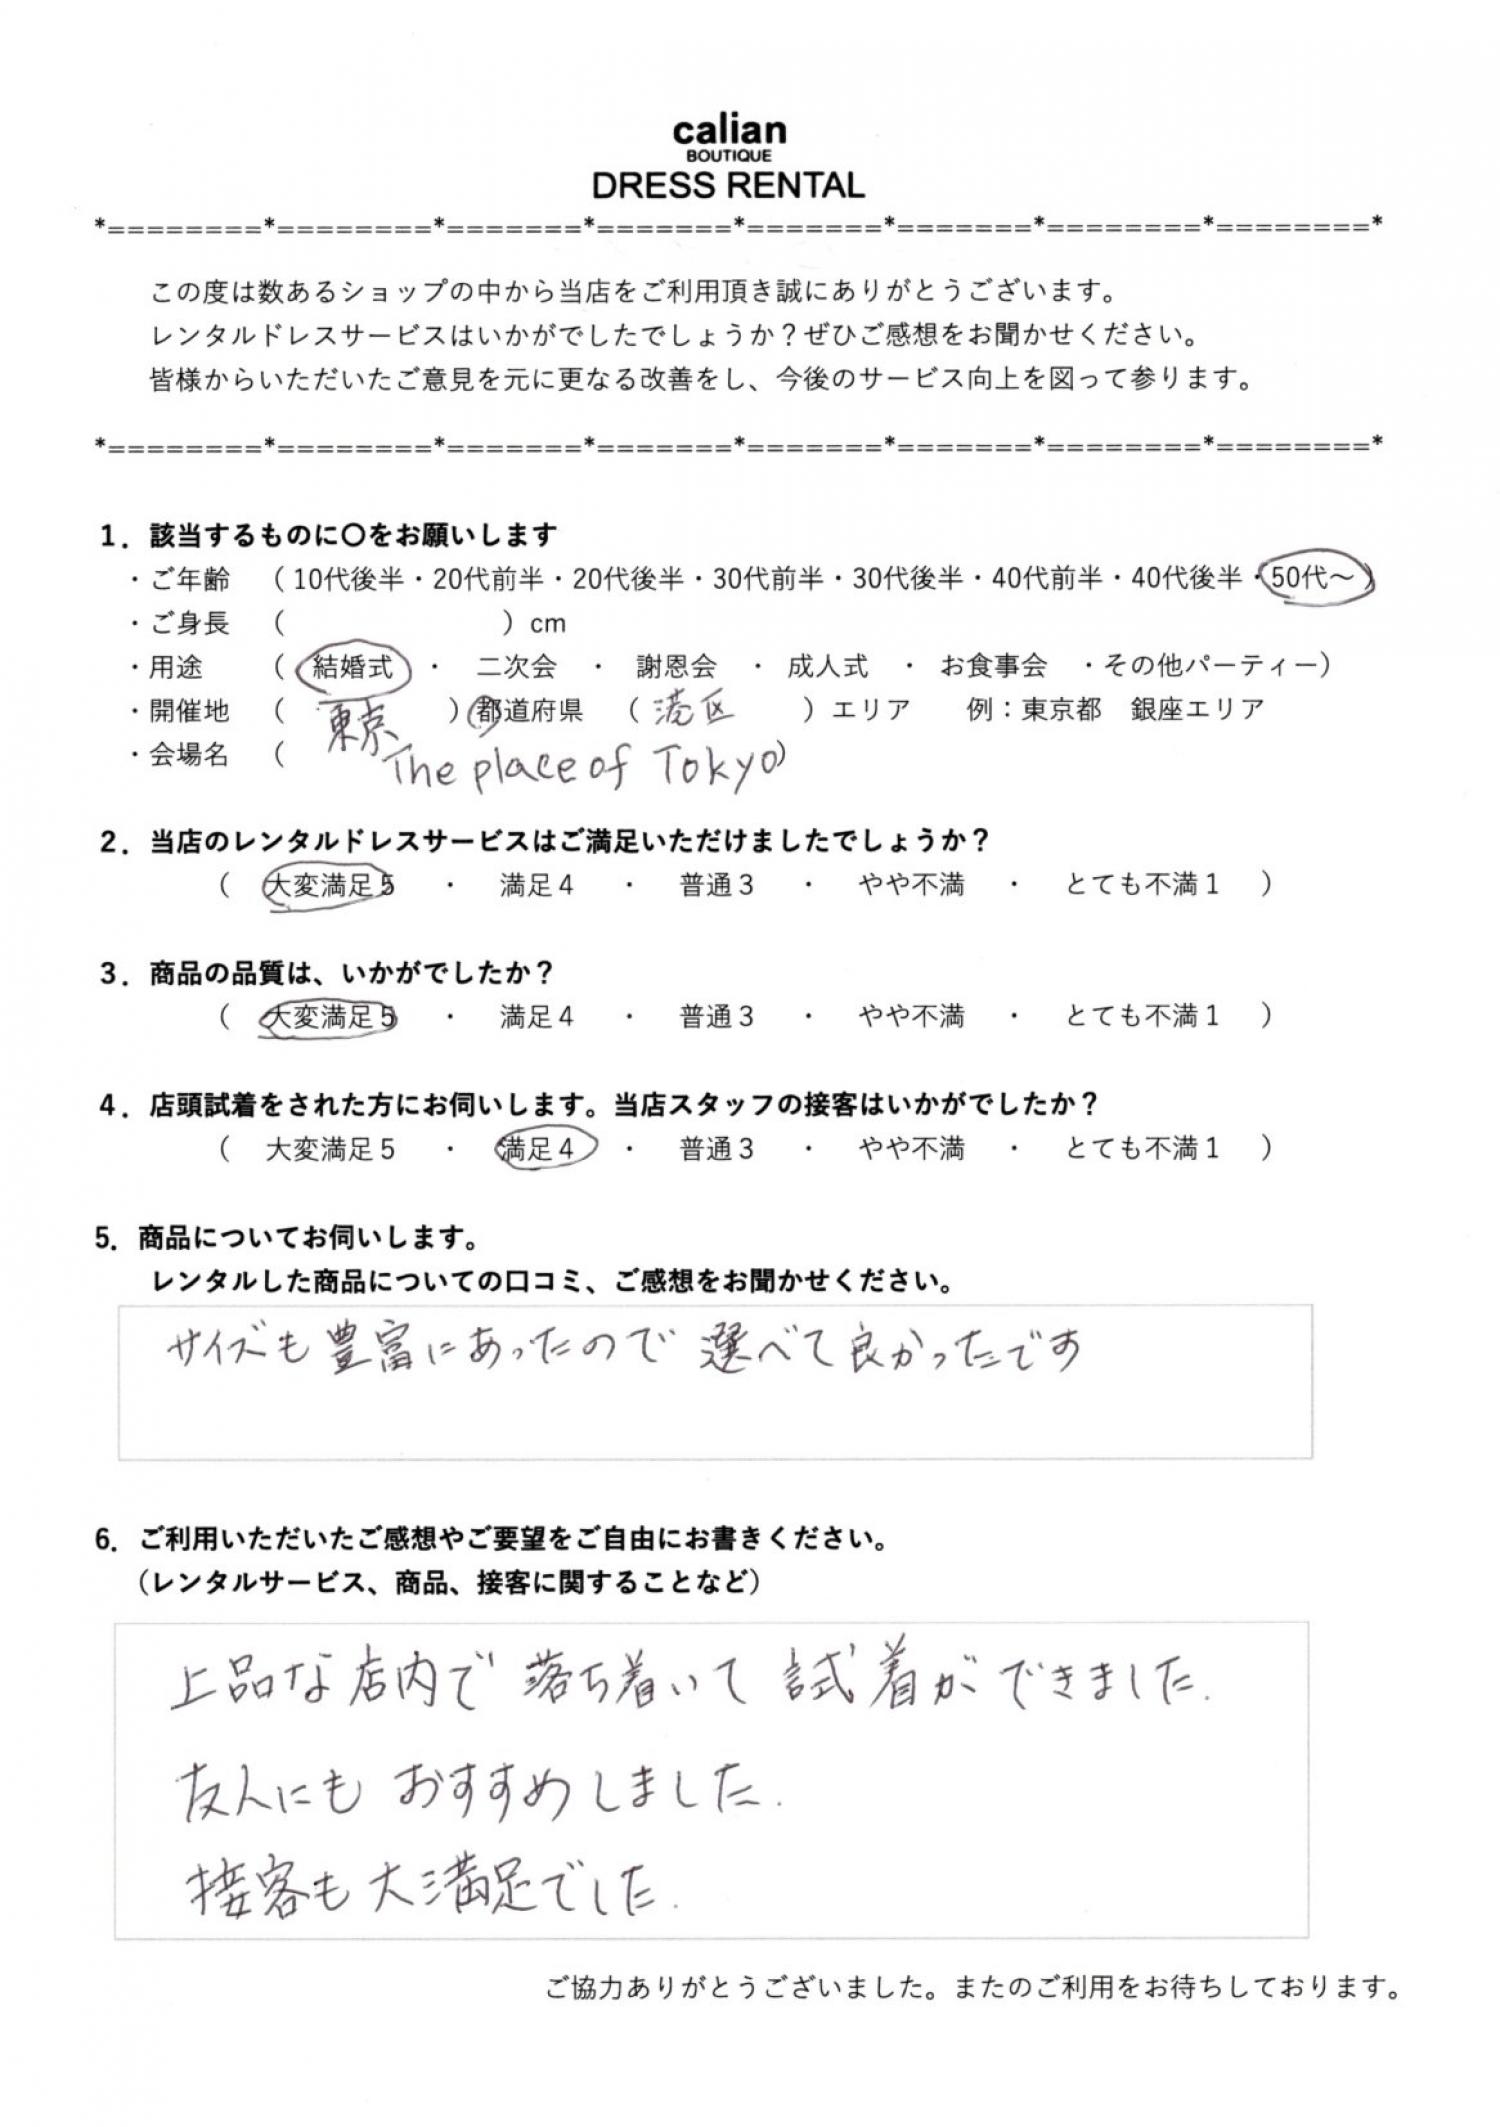 calian
BOUTIQUE
DRESS RENTAL
*========*========*=======*=======*=======*=======*========*========*
この度は数あるショップの中から当店をご利用頂き誠にありがとうございます。
レンタルドレスサービスはいかがでしたでしょうか？ぜひご感想をお聞かせください。
皆様からいただいたご意見を元に更なる改善をし、今後のサービス向上を図って参ります。
*========*========*=======*=======*=======*=======*========*========*
1．該当するものに〇をお願いします
・ご年齢　（ 10代後半・20代前半・20代後半・30代前半・30代後半・40代前半・40代後半・50代～ ）
・ご身長　（　　　　　　　　）cm
・用途　　（　結婚式　・　二次会　・　謝恩会　・ 成人式　・　お食事会　・その他パーティー）
・開催地　（　東京　　）都道府県　（ 港区　　）エリア　　例：東京都　銀座エリア
・会場名　（　The place of Tokyo）
2．当店のレンタルドレスサービスはご満足いただけましたでしょうか？
（　大変満足５　・　満足４　・　普通３　・　やや不満　・　とても不満１　）
3．商品の品質は、いかがでしたか？
（　大変満足５　・　満足４　・　普通３　・　やや不満　・　とても不満１　）
4．店頭試着をされた方にお伺いします。当店スタッフの接客はいかがでしたか？
（　大変満足５　・　満足４　・　普通３　・　やや不満　・　とても不満１　）
5．商品についてお伺いします。
レンタルした商品についての口コミ、ご感想をお聞かせください。
サイズも豊富にあったので選べて良かったです
6．ご利用いただいたご感想やご要望をご自由にお書きください。
（レンタルサービス、商品、接客に関することなど）
上品な店内で落ち着いて試着ができました.
友人にもおすすめしました.
接客も大満足でした.
ご協力ありがとうございました。またのご利用をお待ちしております。